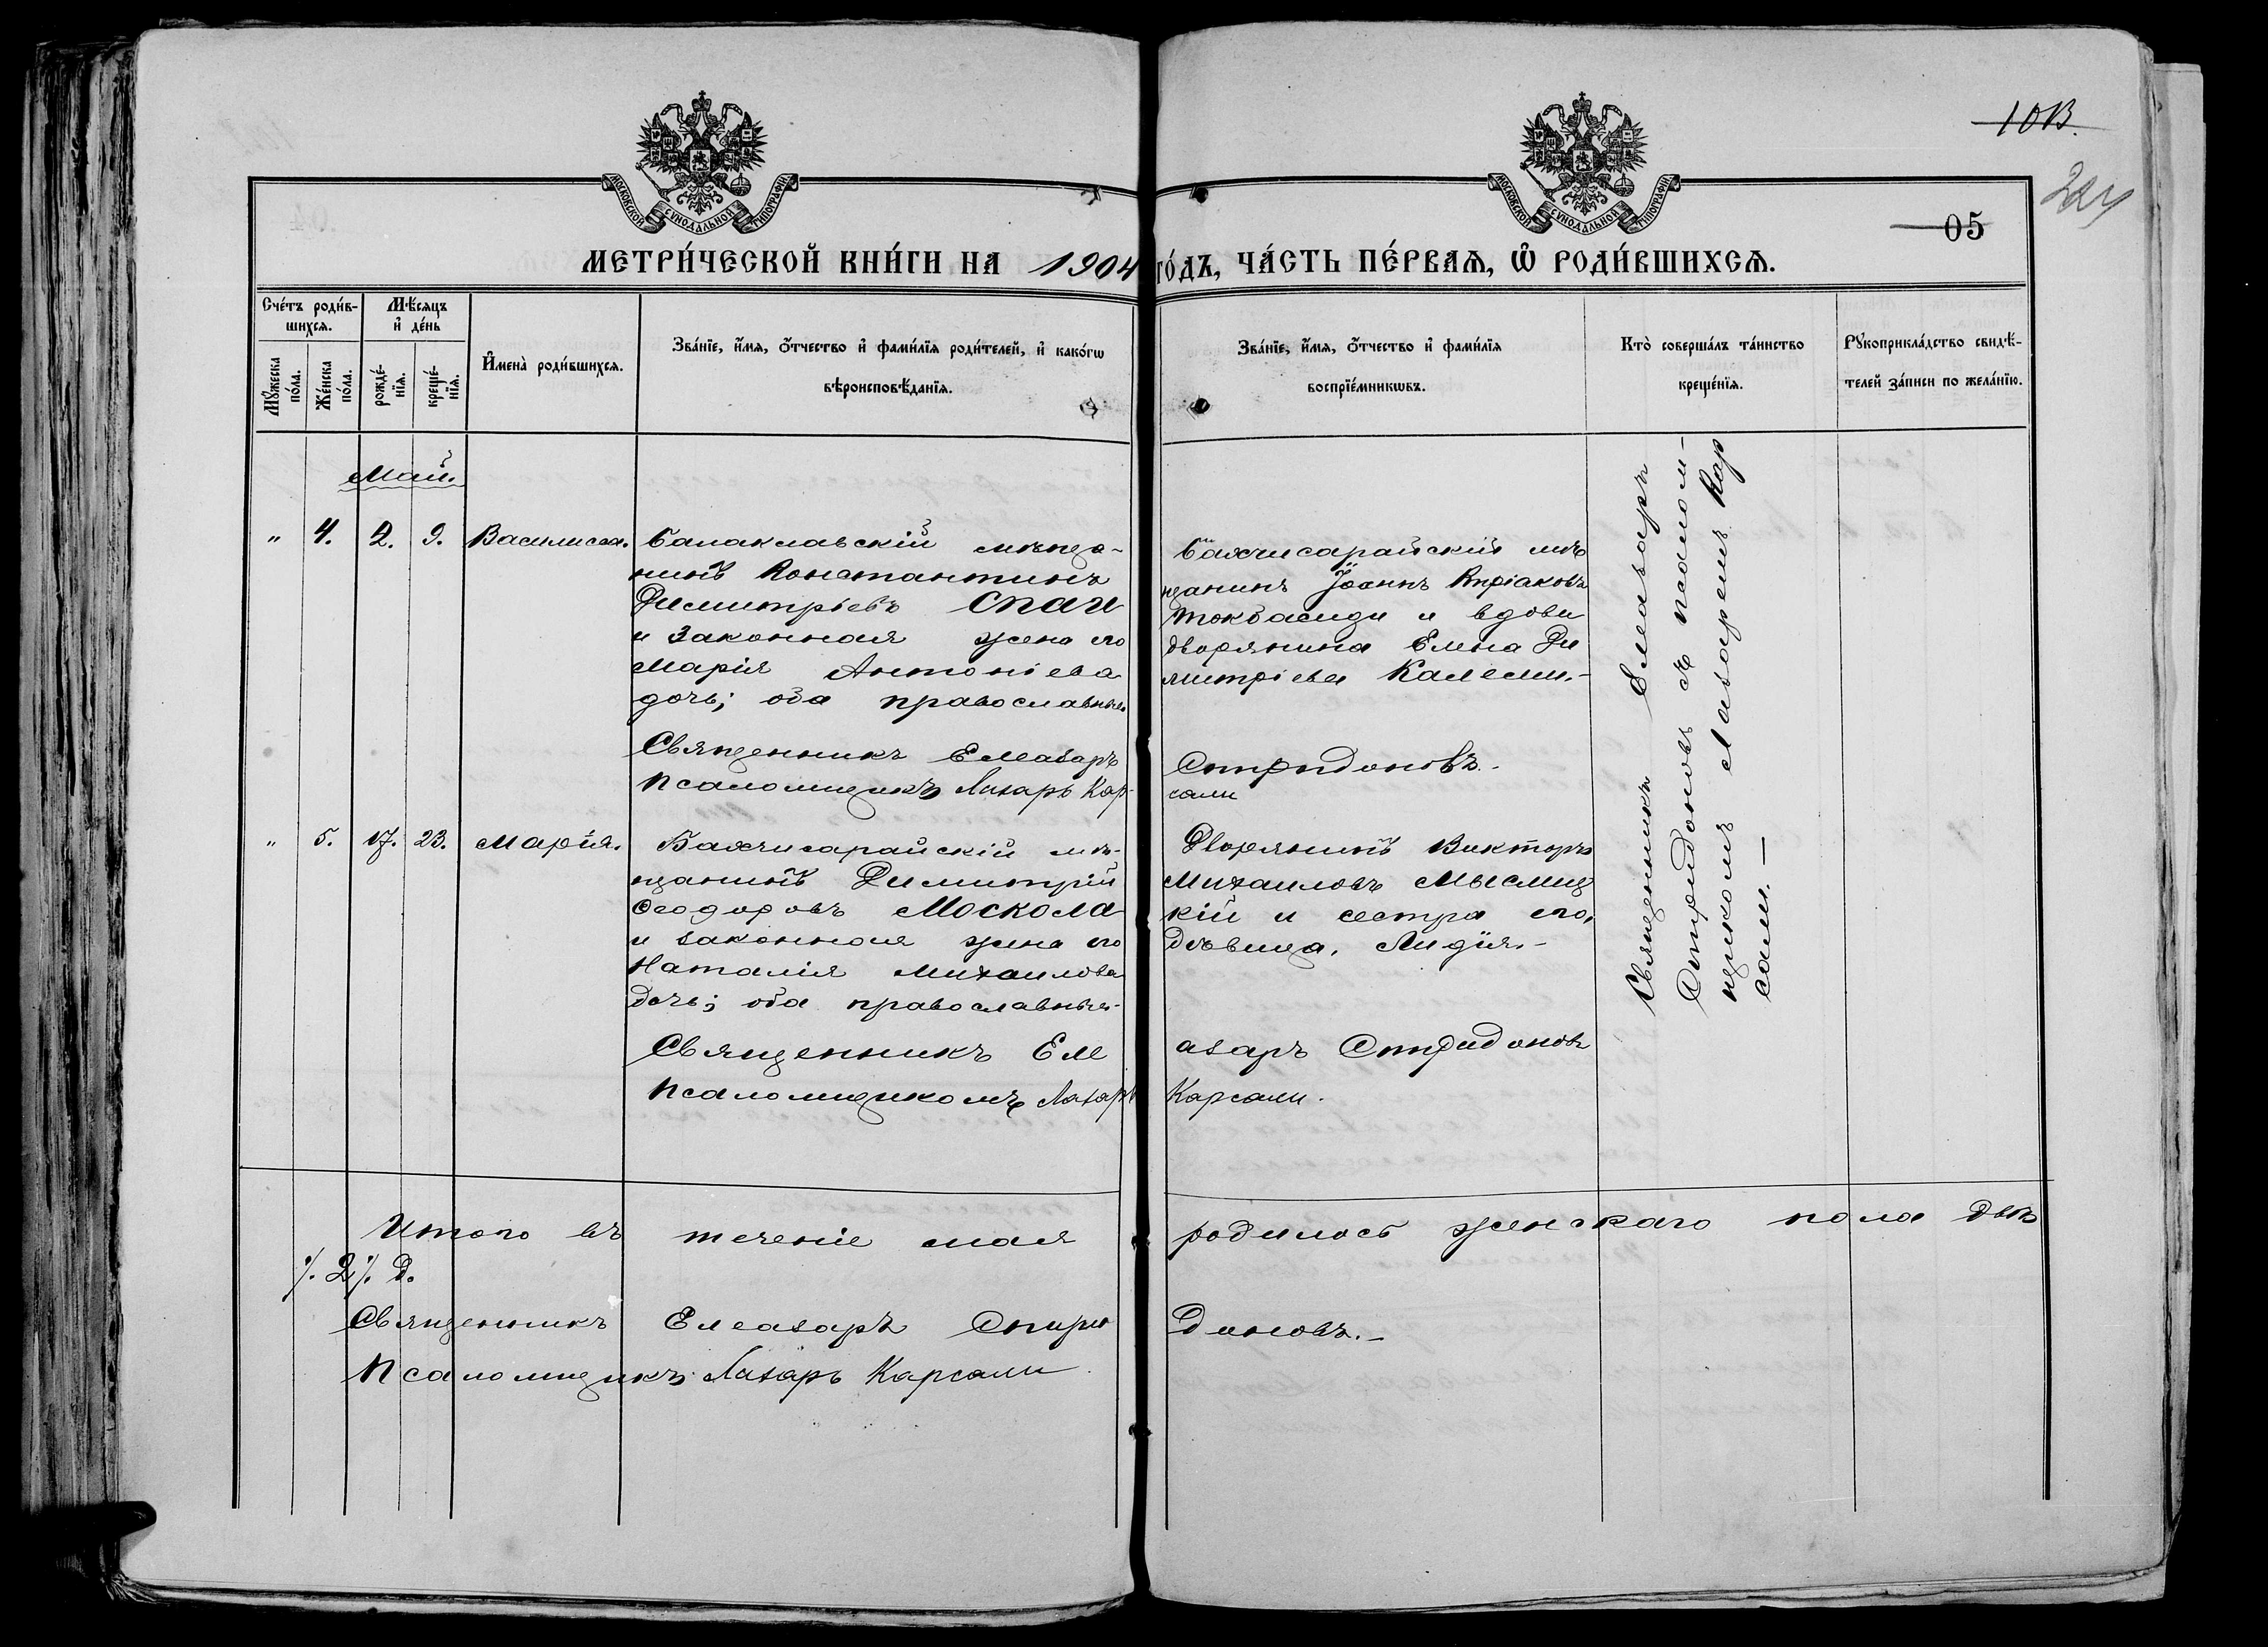 10В.
224
05
МОСКОВСКОЙ СѴНОДАЛЬНОЙ ТИПОГРАФІИ
МОСКОВСКОЙ СѴНОДАЛЬНОЙ ТИПОГРАФІИ
МЕТРИ́ЧЕСКОЙ КНИ́ГИ НА 1904 ГО́ДЪ, ЧА́СТЬ ПЕ́РВАѦ, Ѡ҆ РОДИ́ВШИХСѦ.
Сче́тъ роди́в-
шихсѧ.
Мꙋ́жеска
по́ла.
Же́нска
по́ла.
Мѣ́сѧцъ
и҆ де́нь
рожде́-
нїѧ.
креще́-
нїѧ.
И҆мена̀ роди́вшихсѧ.
Зва́нїе, и҆́мѧ, ѻ҆́тчество и҆ фамн́лїѧ роди́телей, и҆ како́гѡ
вѣроисповѣ́данїѧ.
Зва́нїе, и҆́мѧ, ѻ҆́тчество и҆ фами́лїѧ
воспрїе́мникѡвъ.
Кто̀ соверша́лъ та́инство
креще́нїѧ.
Рꙋкоприкла́дство свидѣ́-
телей за́писи по жела́нїю.
Май.
" 4. 2. 9. Василисса. Балаклавскій мѣща-
нинъ Константинъ
Димитріевъ Спаи
и законная жена его
Марія Антоніева
дочь; оба православные
Священникъ Елеазаръ
Псаломщикъ Лазарь Кар-
Бахчисарайскій мѣ
щанинъ Іоаннъ Киріаковъ
Токбасиди и вдова
дворянина Елена Ди
митріева Калеми.-
Спиридоновъ.
сали
Священникъ Елеазаръ
Спиридоновъ съ псалом-
щикомъ Лазаремъ Кар
сали.—
" 5. 17. 23. Марія. Бахчисарайскій мѣ-
щанинъ Димитрій
Ѳеодоровъ Москола
и законная жена его
Наталія Михаилова
дочь; оба православные.
Священникъ Еле
Псаломщикомъ Лазарь
Дворянинъ Викторъ
Михаиловъ Мыслиц
кій и сестра его,
дѣвица, Лидія.-
азаръ Спиридоновъ
Карсали.
Итого въ течение мая родилось женскаго пола двѣ
%. 2 %. д.
Священникъ Елеазаръ Спири доновъ.-
Псаломщикъ Лазарь Карсали